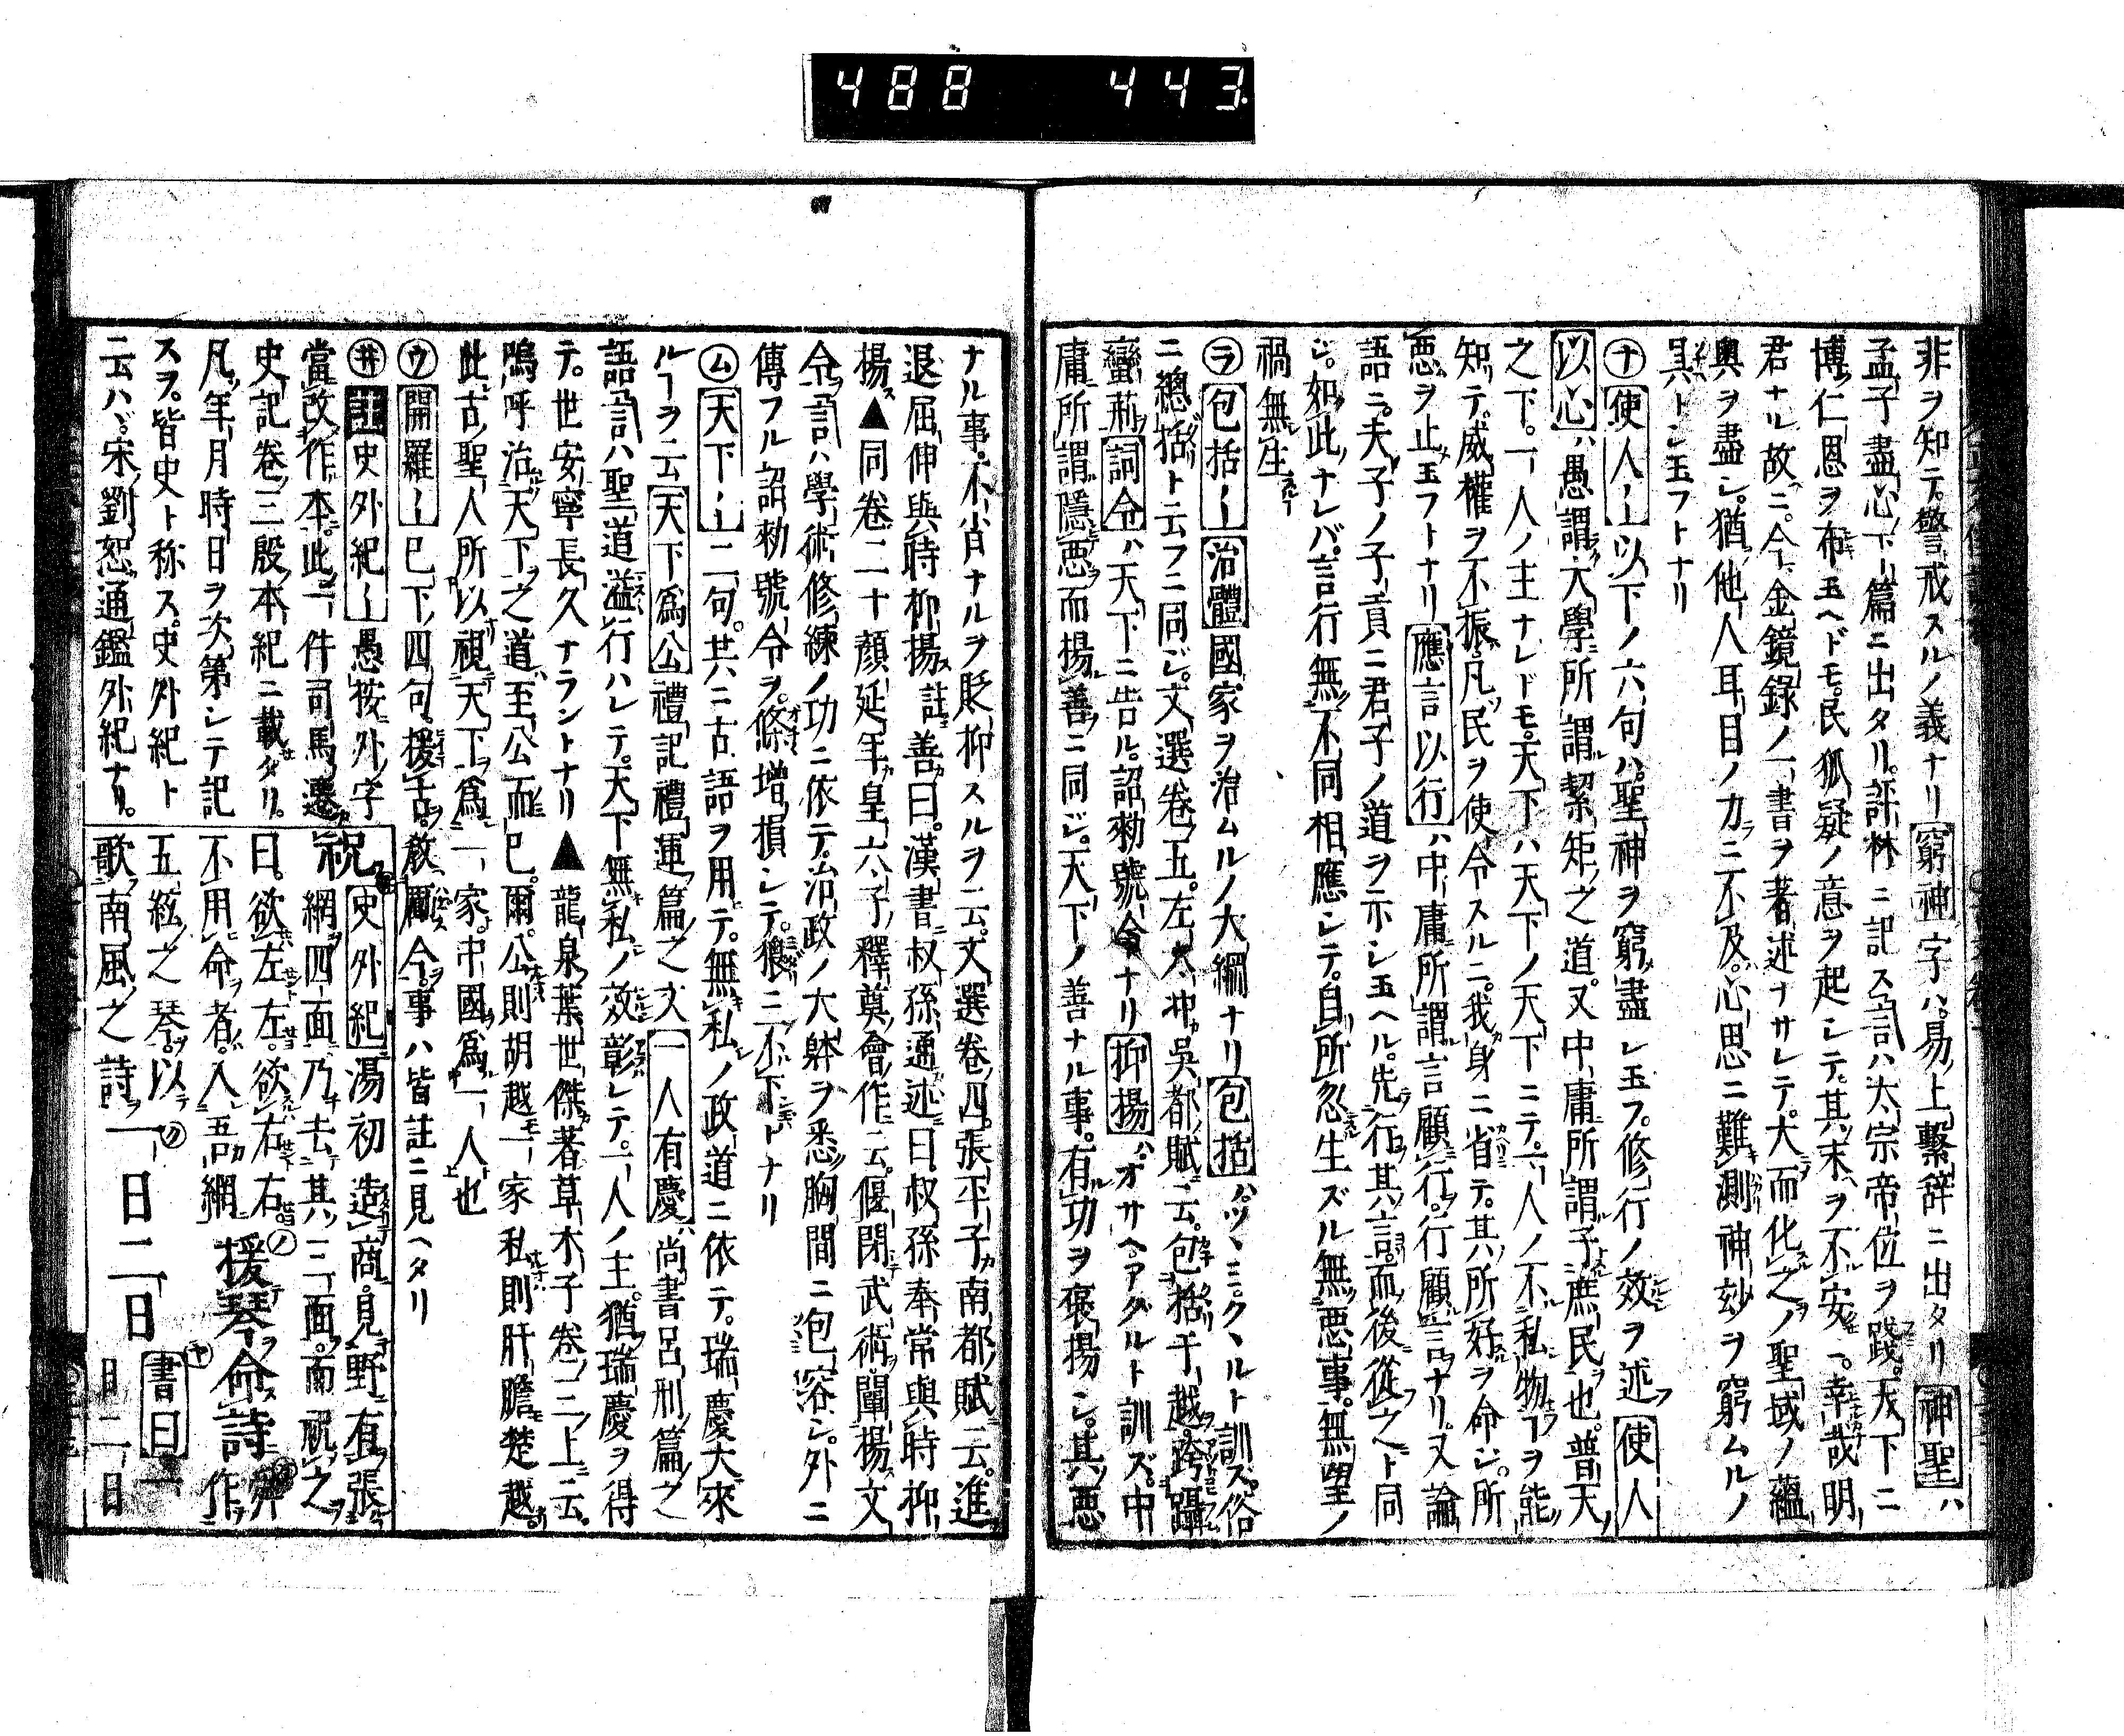 488 443
非ヲ知テ。警戒スルノ義ナリ 窮神 字ハ。易上繫辞ニ出タリ 神聖 ハ
孟子盡心下篇ニ出タリ。評林ニ記ス。言ハ太宗帝位ヲ踐。天下ニ
博仁恩ヲ布玉ヘドモ。民狐疑ノ意ヲ起シテ。其末ヲ不安。幸哉明
君ナル故ニ。今金鏡錄ノ一書ヲ著述ナサレテ。大而化之ノ聖域ノ蘊
奥ヲ盡シ。猶他人耳目ノ力ニ不及。心思ニ難測神妙ヲ窮ムルノ
具トシ玉フトナリ
ナ 使人ー 以下ノ六句ハ。聖神ヲ窮盡シ玉フ。修行ノ效ヲ述 使人
以心 ハ愚謂大學所謂絜矩之道。又中庸所謂子庶民也。普天
之下。一人ノ主ナレドモ。天下ハ天下ノ天下ニテ。一人ノ不私物ヿヲ能
知テ。威權ヲ不振。凡民ヲ使令スルニ。我身ニ省テ。其所好ヲ命ジ。所
惡ヲ止玉フトナリ 應言以行 ハ中庸所謂言顧行。行顧言ナリ。又論
語ニ。夫子ノ子貢ニ君子ノ道ヲ示シ玉ヘル。先行其言。而後從之ト同
ジ。如此ナレバ。言行無不同相應シテ。自所忽生ズル無悪事。無望ノ
禍無生
ラ 包括ー 治體 國家ヲ治ムルノ大綱ナリ 包括 ハ。ツヽミクヽルト訓ズ。俗
ニ總括ト云フニ同ジ。文選卷五。左太冲吳都賦云。包括干越。跨躡
蠻荊 詞令 ハ天下ニ告ル。詔勅號令ナリ 抑揚 ハ。オサヘアグルト訓ズ。中
庸所謂隱悪而揚善ニ同ジ。天下ノ善ナル事。有功ヲ褒揚シ。其悪
ナル事。不肖ナルヲ貶抑スルヲ云。文選卷四。張平子南都賦云。進
退屈伸與時抑揚 註善曰。漢書叔孫通述曰。叔孫奉常與時抑
揚▲同卷二十顏延年皇六子釋奠會作云。偃閉武術闡揚文
令言ハ學術修練ノ功ニ依テ。治政ノ大躰ヲ悉胸間ニ包容シ。外ニ
傳フル詔勅號令ヲ。條增損シテ。猥ニ不下トナリ
ム 天下ー 二句。共ニ古語ヲ用テ。無私ノ政道ニ依テ。瑞慶大來
ルヿヲ云 天下爲公 禮記禮運篇之文 一人有慶 尚書呂刑篇之
語言ハ聖道溢行ハレテ。天下無私ノ效彰レテ。一人ノ主。猶瑞慶ヲ得
テ。世安寧長久ナラントナリ▲龍泉葉世傑著草木子卷三上云。
嗚呼治天下之道。至公而已。爾公則胡越一家私則肝膽楚越。
此古聖人所以視天下爲一家。中國爲一人也
ウ 開羅ー 已下四句。援古。敎厲今。事ハ皆註ニ見ヘタリ
井 註 史外紀ー 愚按外字
當改作本此一件司馬遷
史記卷三殷本紀ニ載タリ。
凡年月時日ヲ次第シテ記
スヲ。皆史ト称ス。史外紀ト
云ハ。宋劉恕通鑑外紀ナリ。
祝 史外紀 湯初造商見野有張
網四面乃去其三面而祝之
曰。欲左左。欲右右。
不用命者入吾網 援琴命詩 作
五絃之琴以
歌南風之詩 一日二日 書曰 一
日二日